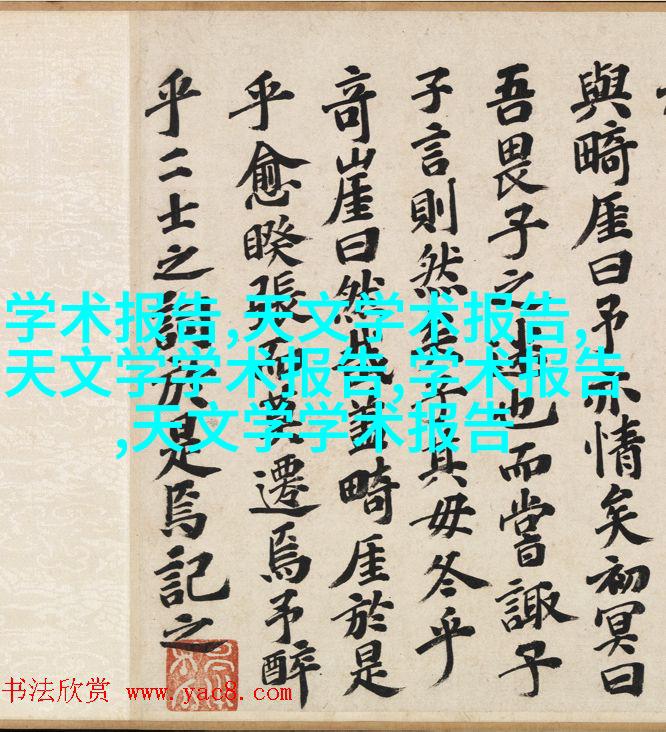 與畸厓曰予亦情矣初冥曰
吾畏子之也而嘗諏子
子言則然其毋冬乎
奇崖曰然畸厓於是
乎愈睽張而遷焉予醉
乎二士之於是焉記之
学术报告,天文学术报告,
天文学学术报告,学术报告
,天文学学术报告
书法欣赏 www.yac8.com